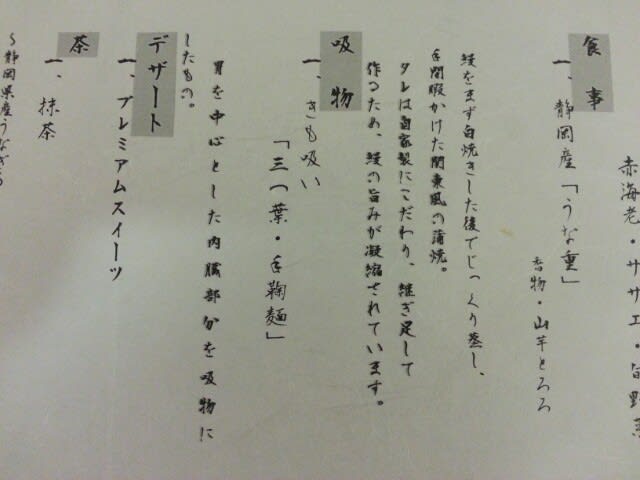 赤海老・サザエ・旬野菜
食事
一、静岡産「うな重」
香物・山芋とろろ
鰻をまず白焼きした後でじっくり蒸し、
手間暇かけた関東風の蒲焼。
タレは自家製にこだわり、継ぎ足して
作るため、鰻の旨みが凝縮されています。
吸物
一、きも吸い
「三つ葉・手鞠麺」
胃を中心とした内臓部分を吸物に
したもの。
デザート
一、プレミアムスイーツ
茶
一、抹茶
～静岡県産うなぎ